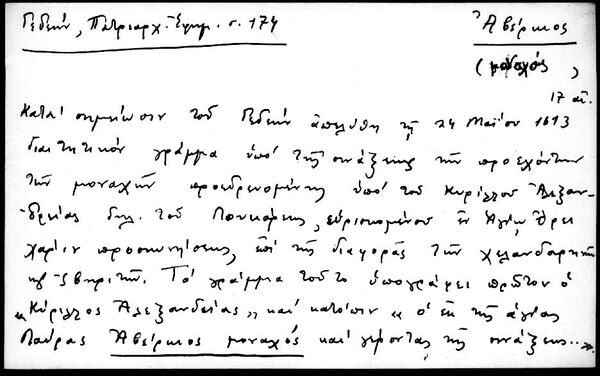 Γεδεών, Πατριαρχ. Ἐφημ. σ. 174
Ἀβέρκιος
(μοναχός)
17 αἰ.
Κατά σημείωσιν τοῦ Γεδεών ἀπελύθη τῇ 24 Μαΐου 1613
διαιτητικόν γράμμα ὑπό τῆς συνάξεως τῶν προεχόντων
τῶν μοναχῶν προεδρευομένης ὑπό τοῦ Κυρίλλου Ἀλεξαν-
δρείας δηλ. τοῦ Λουκάρεως, εὑρισκομένου ἐν Ἁγίῳ Ὄρει
χάριν προσκυνήσεως, ἐπί τῆς διαφορᾶς τῶν χελανδαρηνῶν
Τό γράμμα τοῦτο ὑπογράφει πρῶτον ὁ
"Κύριλλος Ἀλεξανδρείας" καί κατόπιν "ὁ ἐκ τῆς ἁγίας
Λαύρας Ἀβέρκιος μοναχός καί γέροντας τῆς συνάξεως..».